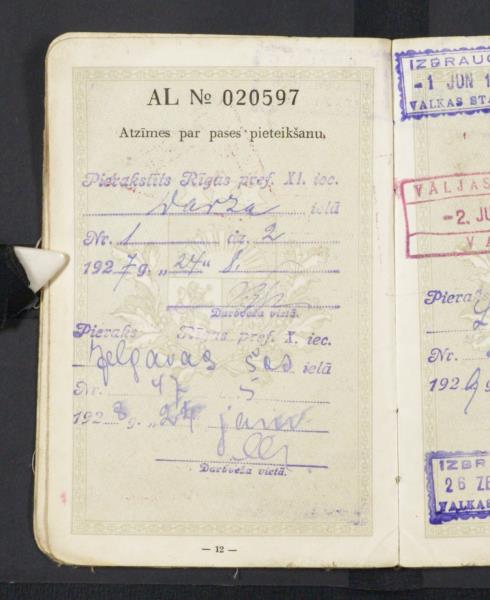 AL № 020597
Atzīmes par pases pieteikšanu.
Pierakstīts Rīgas pref. XI. iec.
Darza ielā
Nr. 1 dz. 2
1927 g. „24" 8.
Darbveža vietā.
Pieraks Rīgas pref. X. iec.
Jelgavas šos. ielā
Nr. 47 5
1928 g. „24 janv
Darbveža vietā.
— 12 —
IZBRAUC
-1 JUN 1
VALKAS STA
VALJAS
-2. JU
VA
Pieraks
Nr.
192
IZBR
26 ZE
VALKAS